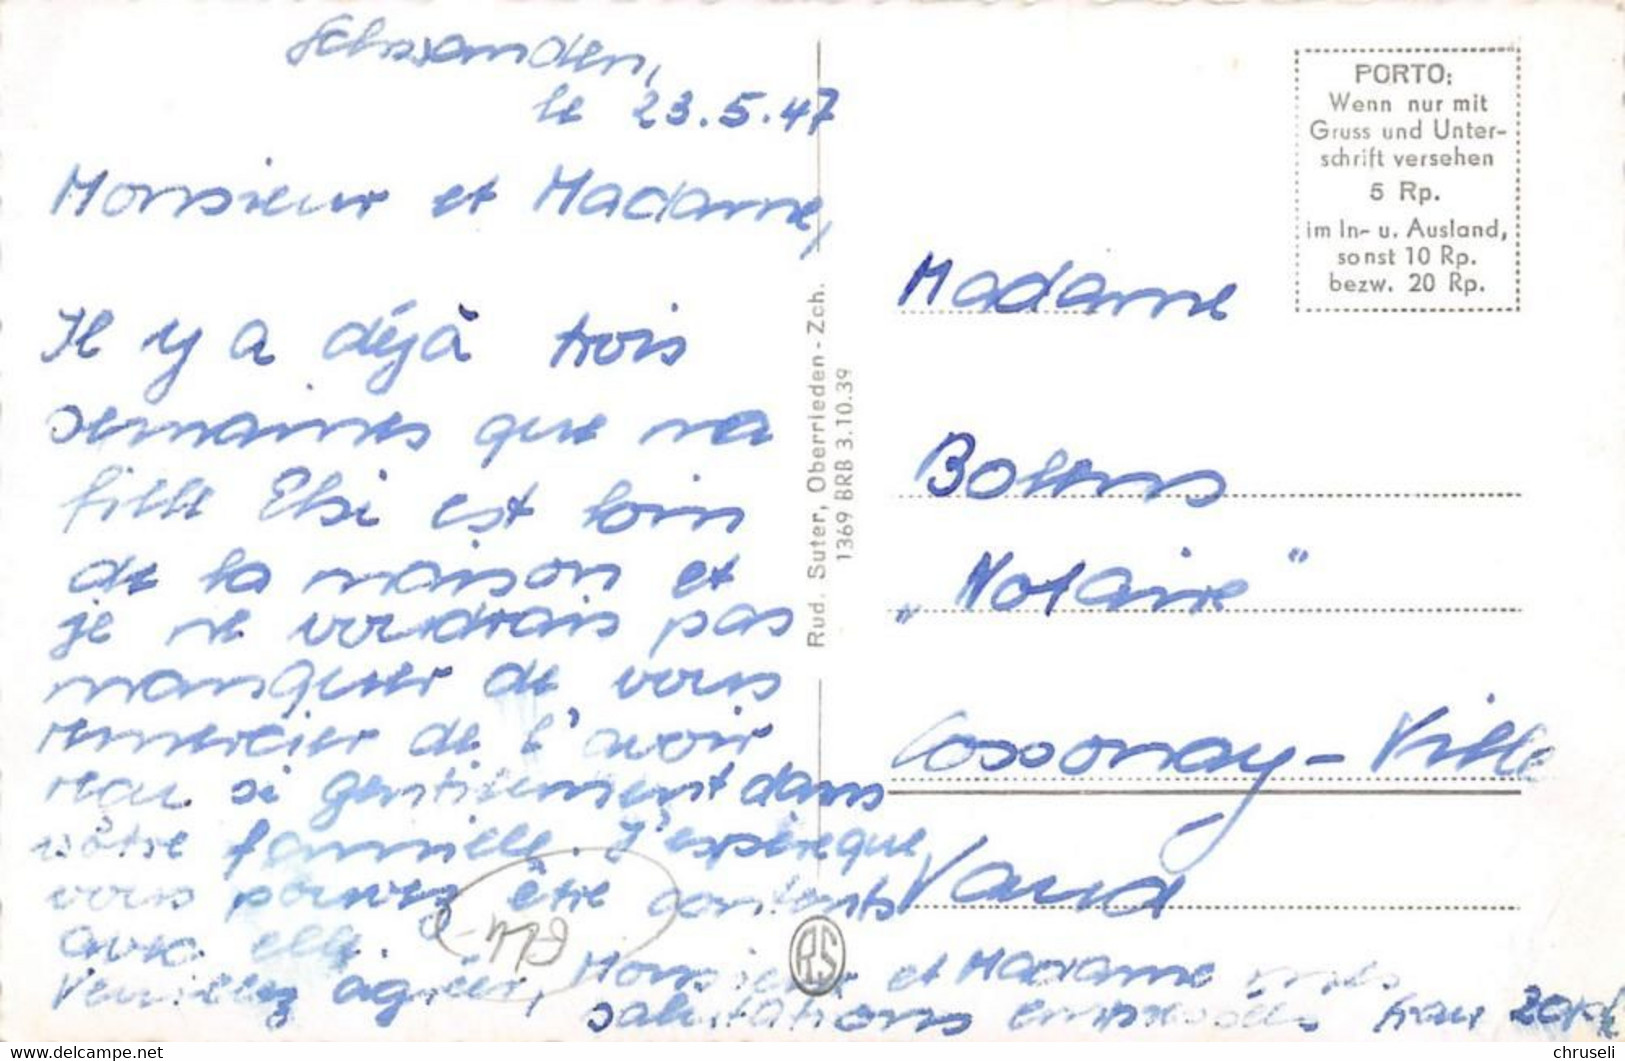 le 23.5.47
Monsieur et Madame,
Il y a déjà trois
semaines que ma
fille Elsi est loin
de la maison et
je ne voudrais pas
manquer de vous
remercier de l'avoir
reçu si gentilement dans
vôtre famille. J'espère que
vous pouvez être contents
avec elle.
Veuillez agréer, Monsieur et Madame mes
salutations empressées Frau
Rud. Suter, Oberrieden - Zch.
1369 BRB 3.10.39
RS
PORTO:
Wenn nur mit
Gruss und Unter-
schrift versehen
5 Rp.
im In- u. Ausland,
sonst 10 Rp.
bezw. 20 Rp.
Madame
„Notaire"
Cossonay-Ville
Vaud
www.delcampe.net
chruseli